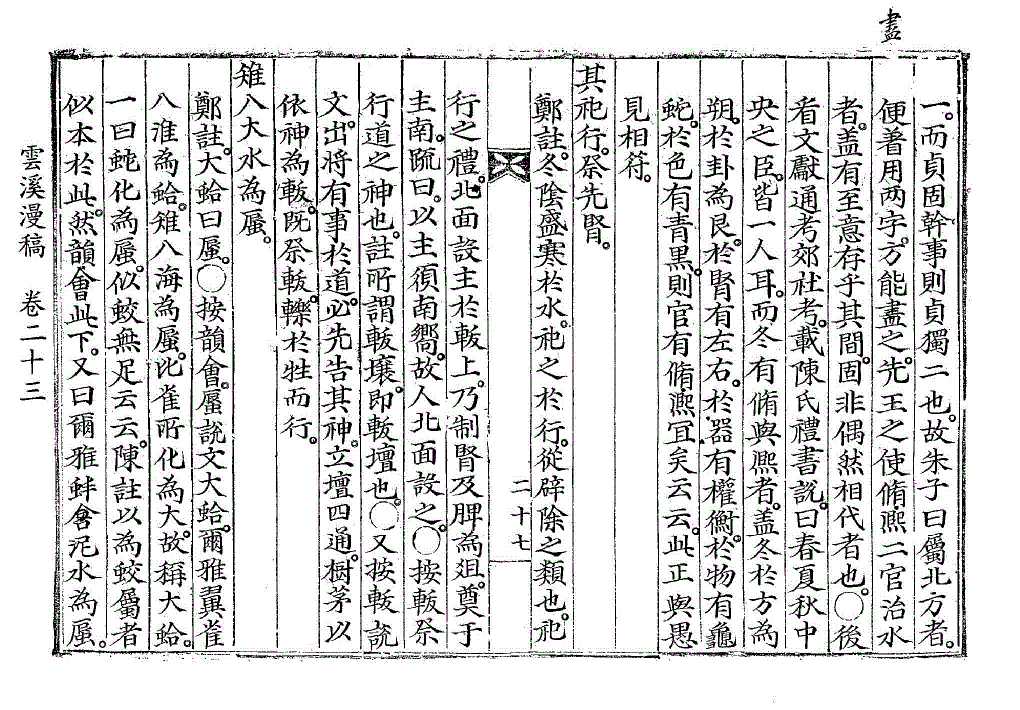 盡
一。而貞固幹事則貞獨二也。故朱子曰屬北方者。
便着用两字。方能盡之。先王之使脩熈二官治水
者。盖有至意存乎其間。固非偶然相代者也。○後
看文獻通考郊社考。載陳氏禮書說。曰春夏秋中
央之臣。皆一人耳。而冬有脩與熈者。盖冬於方為
朔。於卦為艮。於腎有左右。於器有權衡。於物有龜
蛇。於色有青黒。則官有脩熈冝矣云云。此正與愚
見相符。
其祀行。祭先腎。
鄭註。冬陰盛寒於水。祀之於行。從辟除之類也。祀
二十七
行之禮。北面設主於軷上。乃制腎及脾為俎。奠于
主南。䟽曰。以主須南嚮。故人北面設之。○按軷祭
行道之神也。註所謂軷壤。即軷壇也。○又按軷說
文。出。將有事於道。必先告其神。立壇四通。樹茅以
依神為軷。既祭軷。轢於牲而行。
雉入大水為蜃。
鄭註。大蛤曰蜃。○按韻會。蜃說文大蛤。爾雅翼雀
入淮為蛤。雉入海為蜃。比雀所化為大。故稱大蛤。
一曰蛇化為蜃。似蛟無足云云。陳註以為蛟屬者
似本於此。然韻會此下。又曰爾雅蚌含泥水為蜃。
雲溪漫稿 卷二十三